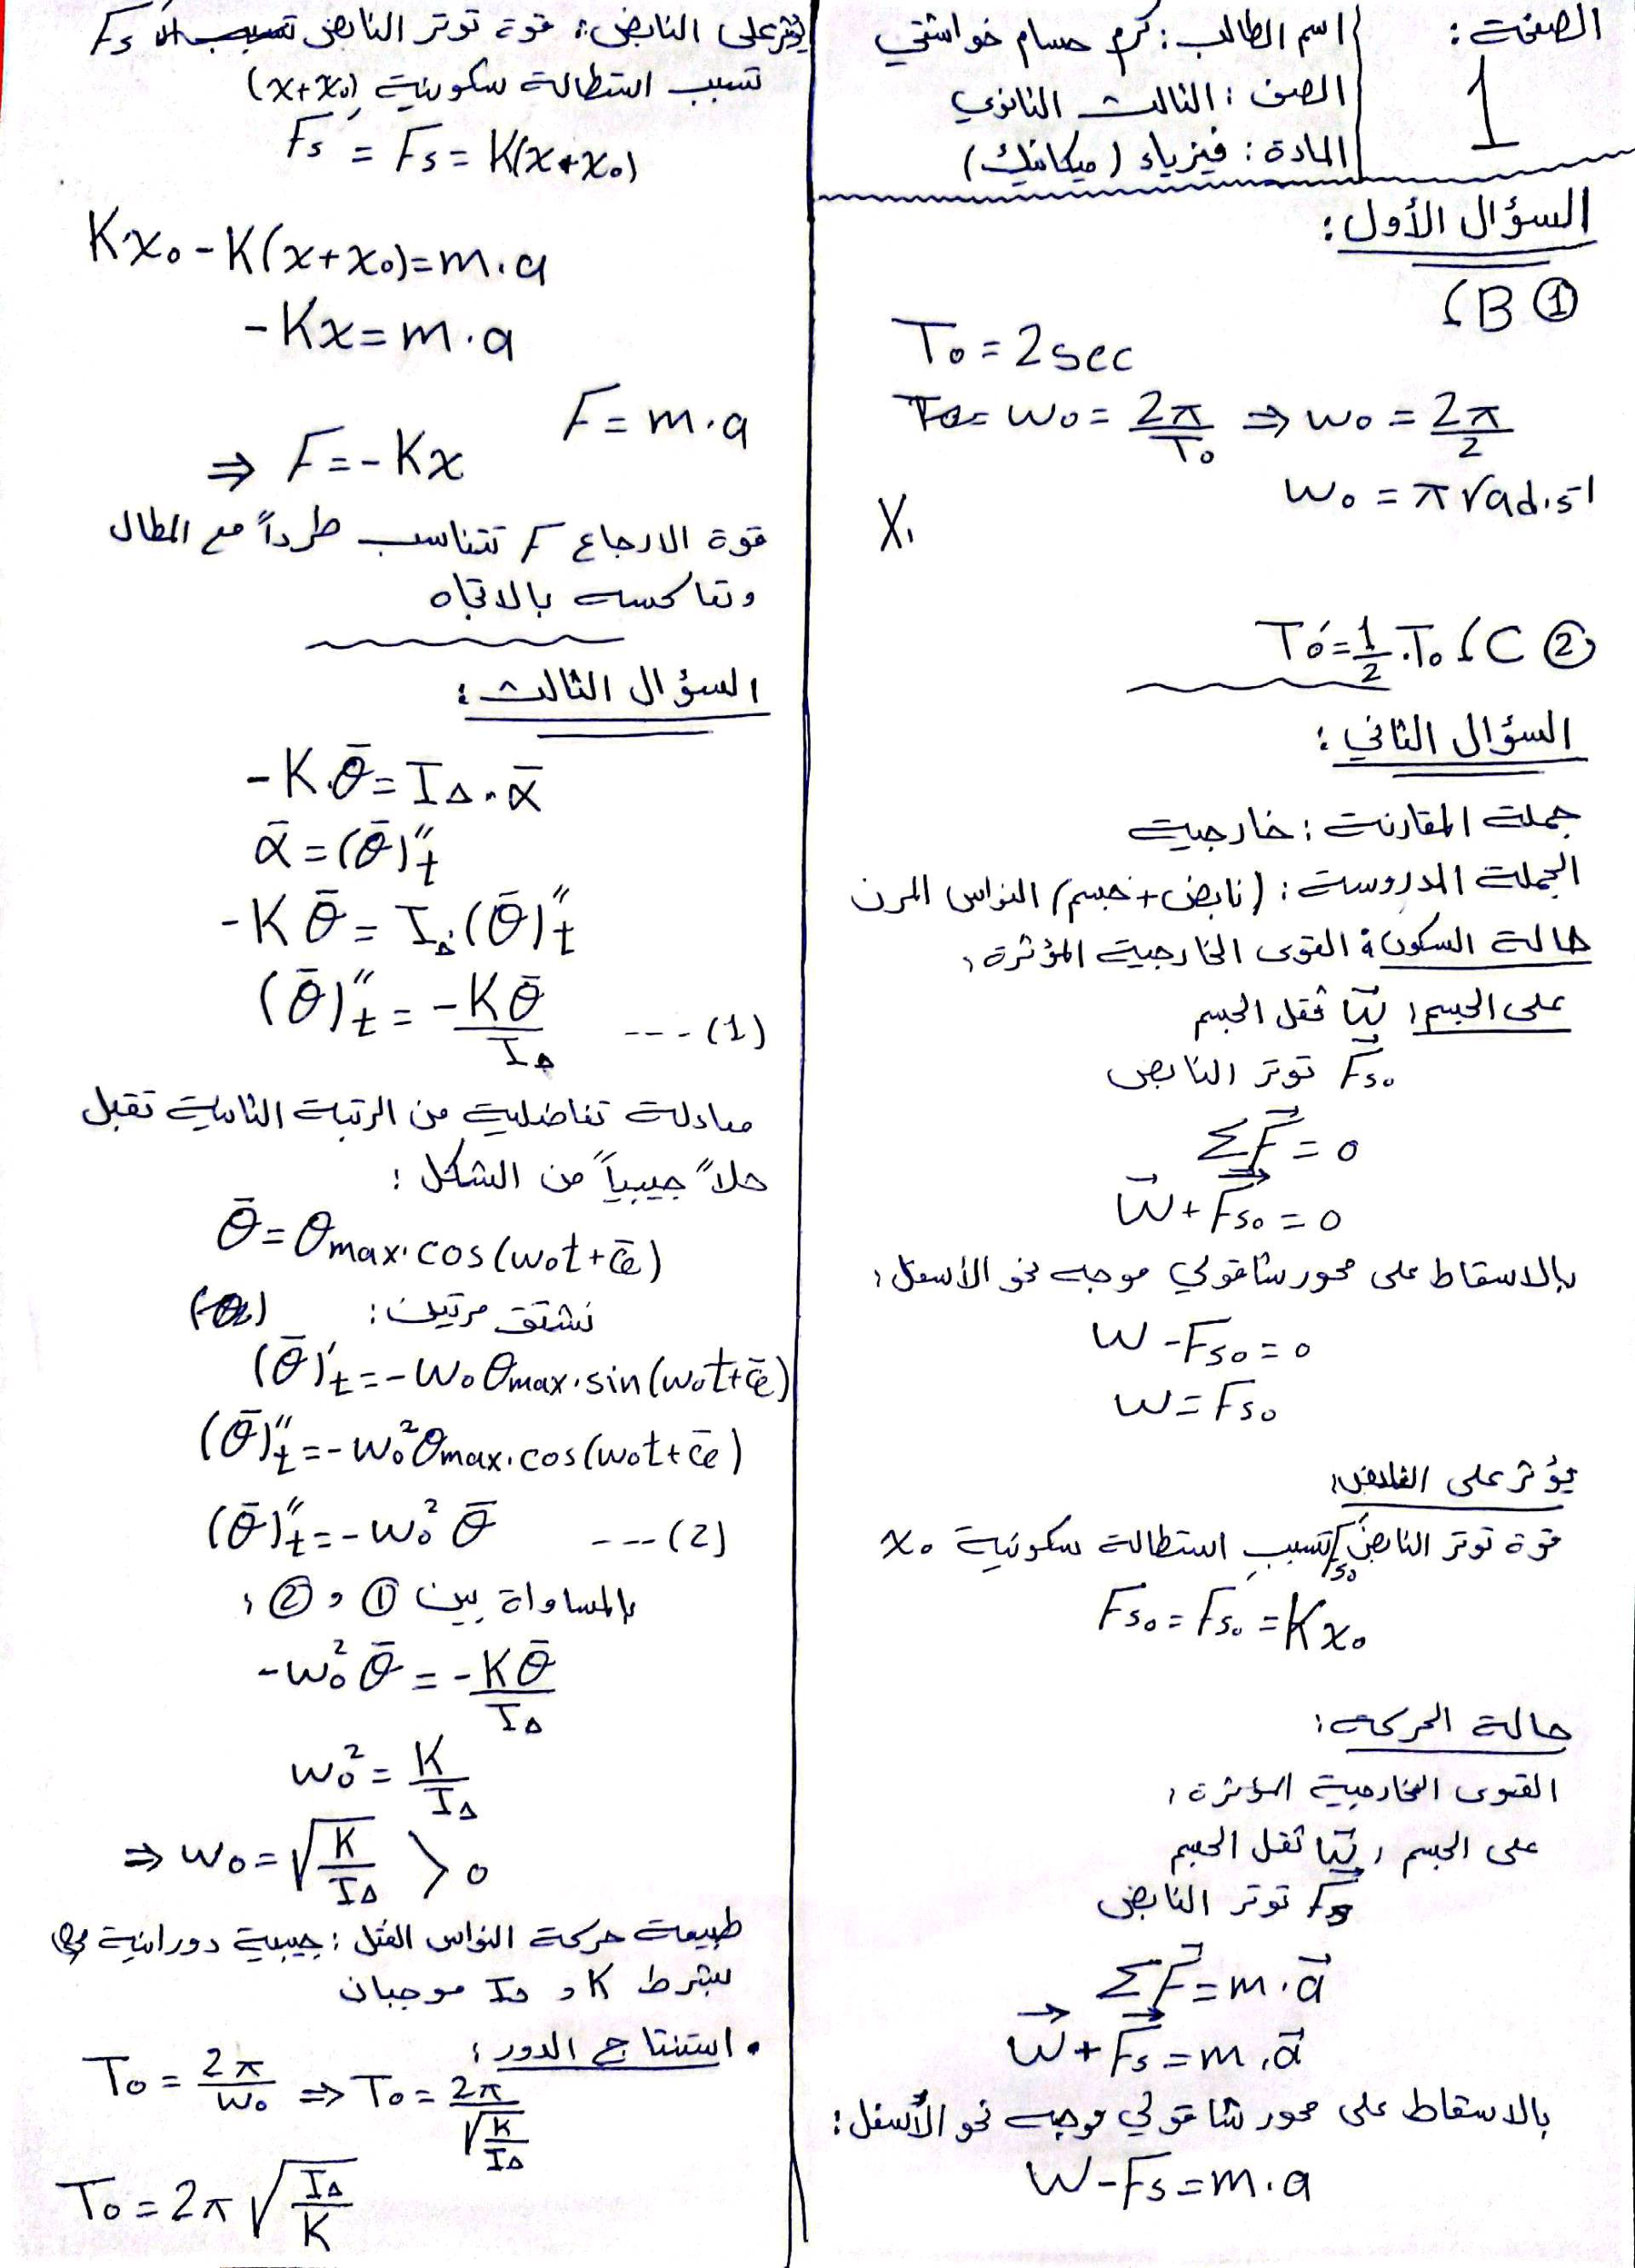 الصفحة:
1
اسم الطالب: كرم حسام خواشتي
الصف: الثالث الثانوي
المادة: فيزياء (ميكانيك)
السؤال الأول:
① B ،
T₀ = 2 sec
ω₀ = 2π/T₀ ⇒ ω₀ = 2π/2
ω₀ = π rad.s⁻¹
X.
② C ، T₀́ = 1/2 . T₀
السؤال الثاني:
جملة المقارنة: خارجية
الجملة المدروسة: (نابض + جسم) النواس المرن
حالة السكون: القوى الخارجية المؤثرة:
على الجسم: W⃗ ثقل الجسم
F⃗s₀ توتر النابض
ΣF⃗ = 0
W⃗ + F⃗s₀ = 0
بالاسقاط على محور شاقولي موجه نحو الأسفل:
W - Fs₀ = 0
W = Fs₀
يؤثر على النابض:
قوة توتر النابض Fs₀́ تسبب استطالة سكونية x₀
Fs₀ = Fs₀́ = Kx₀
حالة الحركة:
القوى الخارجية المؤثرة:
على الجسم: W⃗ ثقل الجسم
F⃗s توتر النابض
ΣF⃗ = m.a⃗
W⃗ + F⃗s = m.a⃗
بالاسقاط على محور شاقولي موجه نحو الأسفل:
W - Fs = m.a
يؤثر على النابض: قوة توتر النابض Fs
تسبب استطالة سكونية (x+x₀)
Fś = Fs = K(x+x₀)
Kx₀ - K(x+x₀) = m.a
-Kx = m.a
F = m.a
⇒ F = -Kx
قوة الارجاع F تتناسب طرداً مع المطال
وتعاكسه بالاتجاه
السؤال الثالث:
-K.θ̄ = I∆.ᾱ
ᾱ = (θ̄)″t
-Kθ̄ = I∆.(θ̄)″t
(θ̄)″t = -Kθ̄/I∆ --- (1)
معادلة تفاضلية من الرتبة الثانية تقبل
حلاً جيبياً من الشكل:
θ̄ = θmax.cos(ω₀t + φ̄)
نشتق مرتين:
(θ̄)′t = -ω₀θmax.sin(ω₀t+φ̄)
(θ̄)″t = -ω₀²θmax.cos(ω₀t+φ̄)
(θ̄)″t = -ω₀² θ̄ --- (2)
بالمساواة بين ① و ②:
-ω₀² θ̄ = -Kθ̄/I∆
ω₀² = K/I∆
⇒ ω₀ = √(K/I∆) > 0
طبيعة حركة النواس الفتل: جيبية دورانية
بشرط K و I∆ موجبان
• استنتاج الدور:
T₀ = 2π/ω₀ ⇒ T₀ = 2π/√(K/I∆)
T₀ = 2π√(I∆/K)